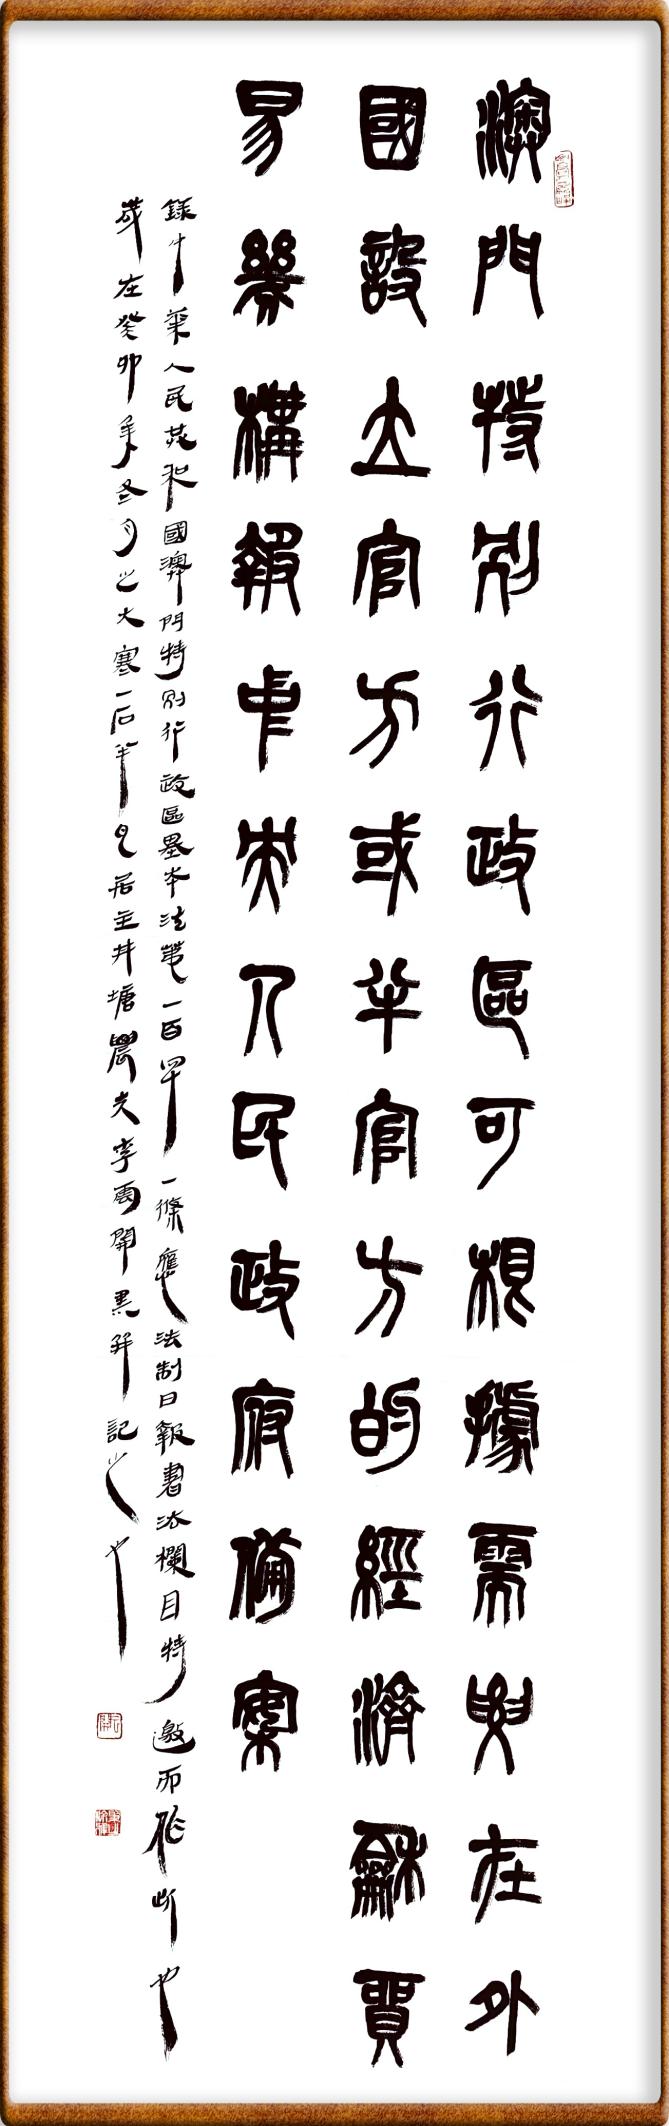 澳門特別行政區可根據需要在外
國設立官方或半官方的經濟龢貿
易幾構報中央人民政府備案
錄中華人民共和國澳門特別行政區基本法第一百四十一條應法制日報書法欄目特邀而作此也
歲在癸卯年冬月之大寒一石半居主井塘農夫李雲開墨并記之也